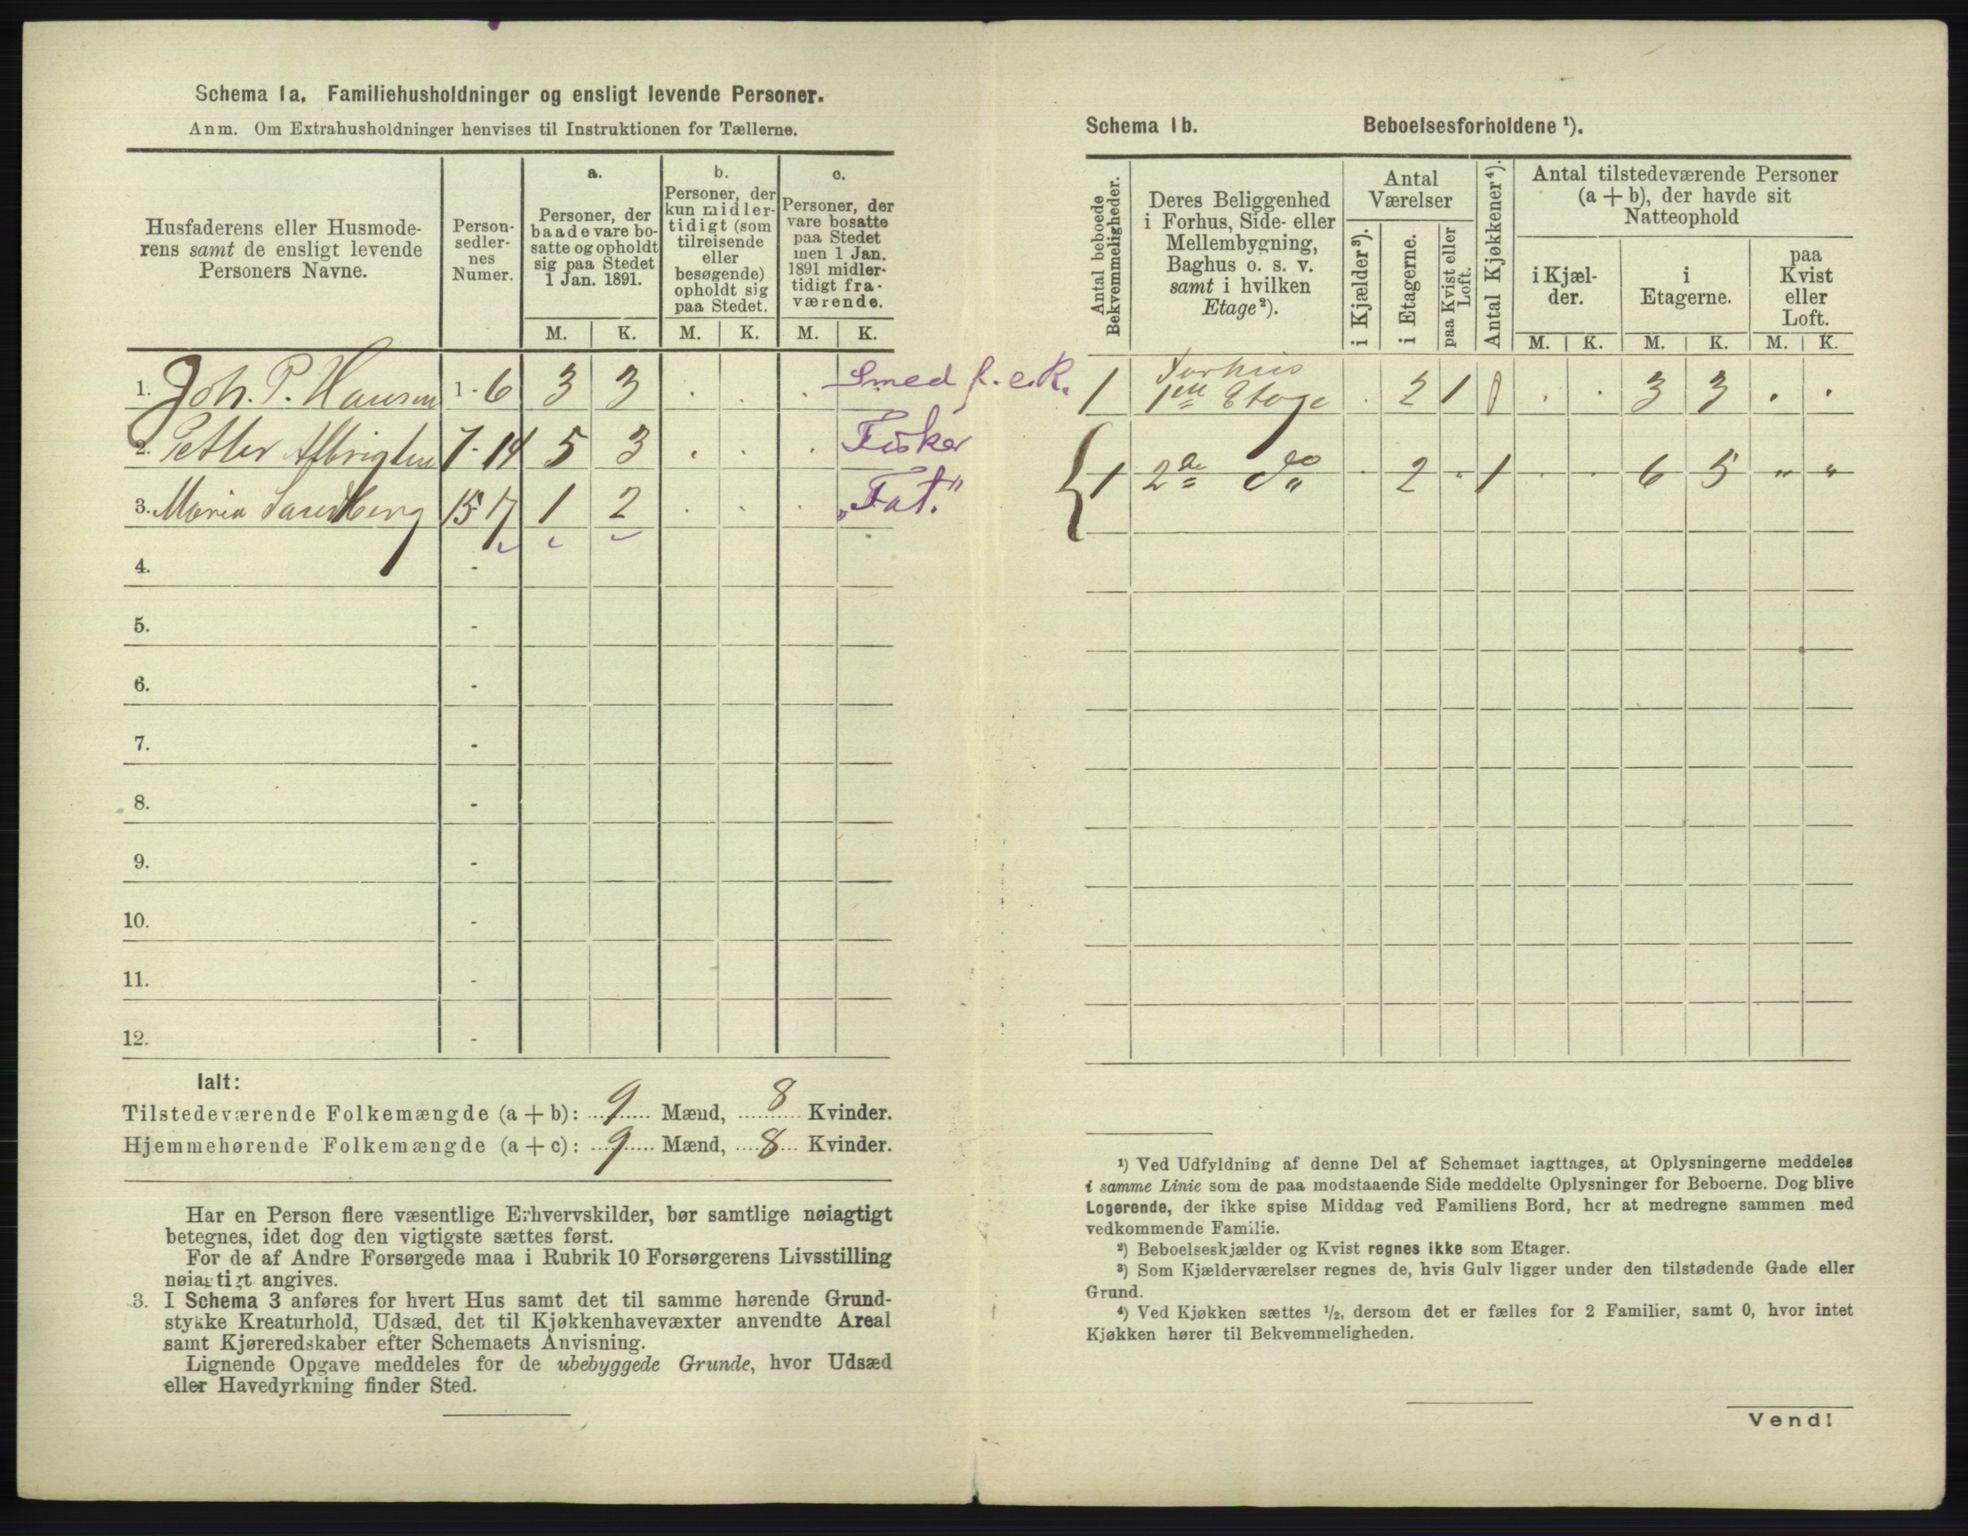 Schema 1a. Familiehusholdninger og ensligt levende Personer.
Anm. Om Extrahusholdninger henvises til Instruktionen for Tællerne.
Husfaderens eller Husmode-
rens samt de ensligt levende
Personers Navne.
Person-
sedler-
nes
Numer.
a.
Personer, der
baade vare bo-
satte og opholdt
sig paa Stedet
1 Jan. 1891.
b.
Personer, der
kun midler-
tidigt (som
tilreisende
eller
besøgende)
opholdt sig
paa Stedet.
c.
Personer, der
vare bosatte
paa Stedet
men 1 Jan.
1891 midler-
tidigt fra-
værende.
M. K. M. K. M. K.
1. Joh. P. Hansen 1 - 6 3 3 . . . Smed f. e. R.
2. Petter Albrigtsen 7 - 14 5 3 . . . Fisker
3. Maria Sandberg 15 17 1 2 . . . „Fat."
4. -
5. -
6. -
7. -
8. -
9. -
10. -
11. -
12. -
Ialt:
Tilstedeværende Folkemængde (a + b): 9 Mænd, 8 Kvinder.
Hjemmehørende Folkemængde (a + c): 9 Mænd, 8 Kvinder.
Har en Person flere væsentlige Erhvervskilder, bør samtlige nøiagtigt
betegnes, idet dog den vigtigste sættes først.
For de af Andre Forsørgede maa i Rubrik 10 Forsørgerens Livsstilling
nøiagtigt angives.
3. I Schema 3 anføres for hvert Hus samt det til samme hørende Grund-
stykke Kreaturhold, Udsæd, det til Kjøkkenhavevæxter anvendte Areal
samt Kjøreredskaber efter Schemaets Anvisning.
Lignende Opgave meddeles for de ubebyggede Grunde, hvor Udsæd
eller Havedyrkning finder Sted.
Schema 1b. Beboelsesforholdene ¹).
Antal beboede
Bekvemmeligheder.
Deres Beliggenhed
i Forhus, Side- eller
Mellembygning,
Baghus o. s. v.
samt i hvilken
Etage²).
Antal
Værelser
i Kjælder³).
i Etagerne.
paa Kvist eller
Loft.
Antal Kjøkkener⁴).
Antal tilstedeværende Personer
(a + b), der havde sit
Natteophold
i Kjæl-
der.
i
Etagerne.
paa
Kvist
eller
Loft.
M. K. M. K. M. K.
1 Forhus
1ste Etage . 2 1 1 . . 3 3 . .
1 2de do . 2 " 1 . . 6 5 " "
¹) Ved Udfyldning af denne Del af Schemaet iagttages, at Oplysningerne meddeles
i samme Linie som de paa modstaaende Side meddelte Oplysninger for Beboerne. Dog blive
Logerende, der ikke spise Middag ved Familiens Bord, her at medregne sammen med
vedkommende Familie.
²) Beboelseskjælder og Kvist regnes ikke som Etager.
³) Som Kjælderværelser regnes de, hvis Gulv ligger under den tilstødende Gade eller
Grund.
⁴) Ved Kjøkken sættes ½, dersom det er fælles for 2 Familier, samt 0, hvor intet
Kjøkken hører til Bekvemmeligheden.
Vend!